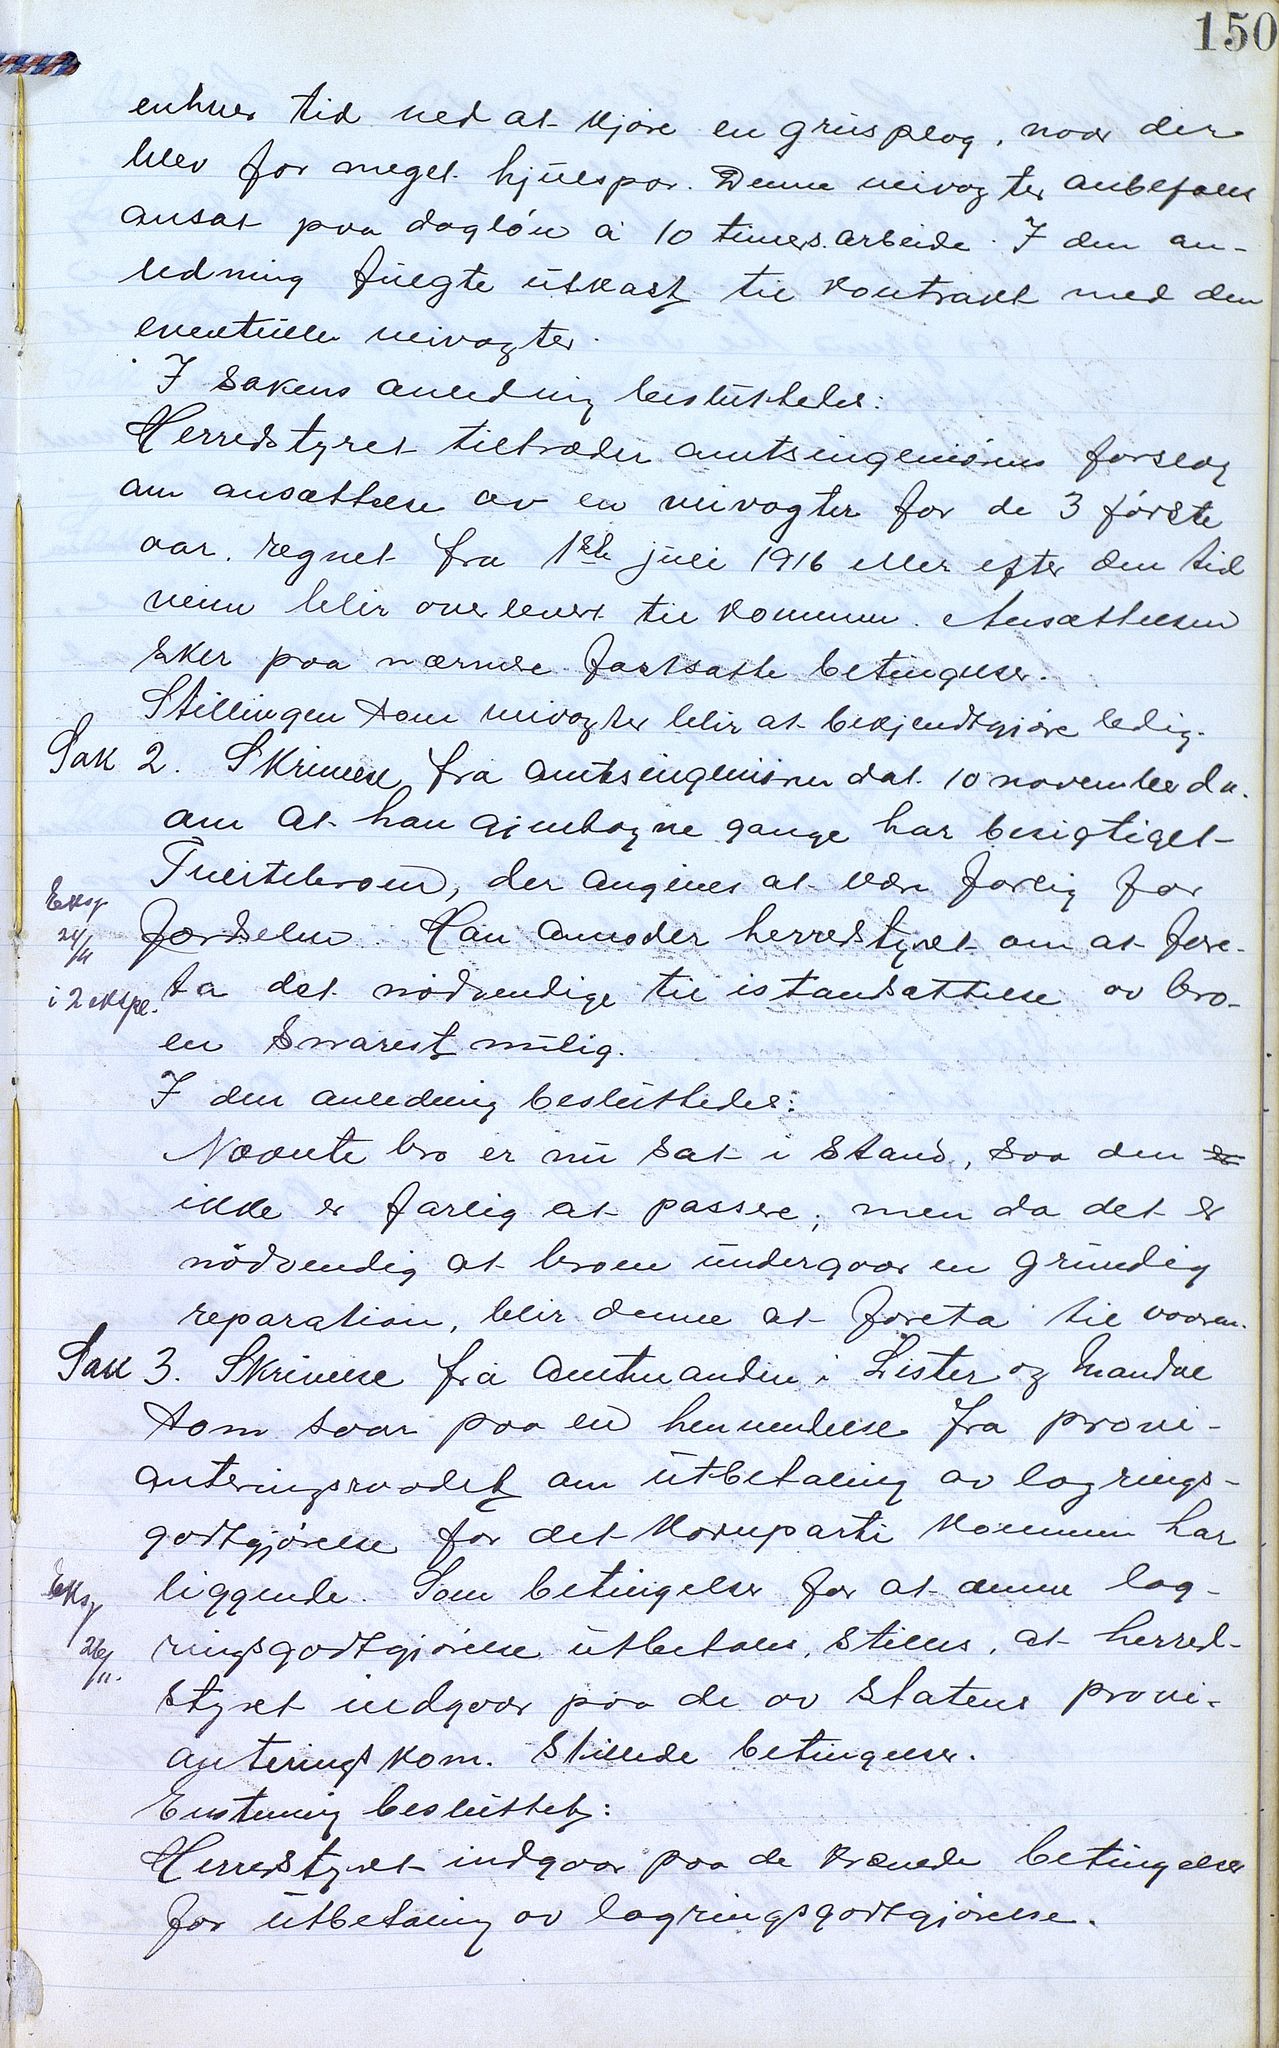 150
enhver tid ved at kjøre en grusplog, naar der
blev for meget hjulspor. Denne veivogter anbefales
ansat paa dagløn a 10 timers arbeide. I den an-
ledning fulgte utkast til kontrakt med den
eventuelle veivogter.
I sakens anledning besluttedes:
Herredstyret tiltræder amtsingeniørens forslag
om ansættelse av en veivogter for de 3 første
aar, regnet fra 1ste juli 1916 eller efter den tid
veien blir overlevert til kommunen. Ansættelsen
sker paa nærmere fastsatte betingelser.
Stillingen som veivogter blir at bekjendtgjøre ledig.
Sak 2. Skrivelse fra amtsingeniøren dat. 10 november d.a.
om at han gjentagne gange har besigtiget
Tveitebroen, der angives at være farlig for
Eksp
færdselen. Han anmoder herredstyret om at fore-
24/11
ta det nødvendige til istandsættelse av bro-
i 2 ekspl.
en snarest mulig.
I den anledning besluttedes:
Nævnte bro er nu sat i stand, saa den er
ikke er farlig at passere; men da det er
nødvendig at broen undergaar en grundig
reparation, blir denne at foreta til vaaren.
Sak 3. Skrivelse fra amtmanden i Lister og Mandal
som svar paa en henvendelse fra provi-
anteringsraadet om utbetaling av lagrings-
godtgjørelse for det kornparti kommunen har
Eksp
liggende. Som betingelse for at denne lag-
26/11.
ringsgodtgjørelse utbetales, stilles, at herred-
styret indgaar paa de av statens provi-
anteringskom. stillede betingelser.
Enstemmig besluttet:
Herredstyret indgaar paa de krævede betingelser
for utbetaling av lagringsgodtgjørelse.